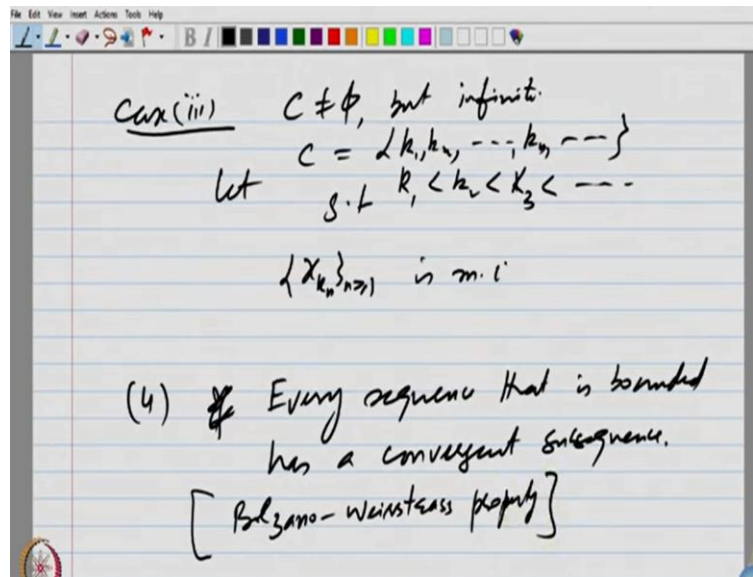 File Edit View Insert Actions Tools Help
Case (iii) C ≠ ϕ, but infinite.
Let C = {k₁, k₂, ---, kₙ, ---}
s.t k₁ < k₂ < k₃ < ----
{x_{kₙ}}_{n≥1} is m.i
(4) Every sequence that is bounded
has a convergent subsequence.
[Bolzano-Weirstrass property]